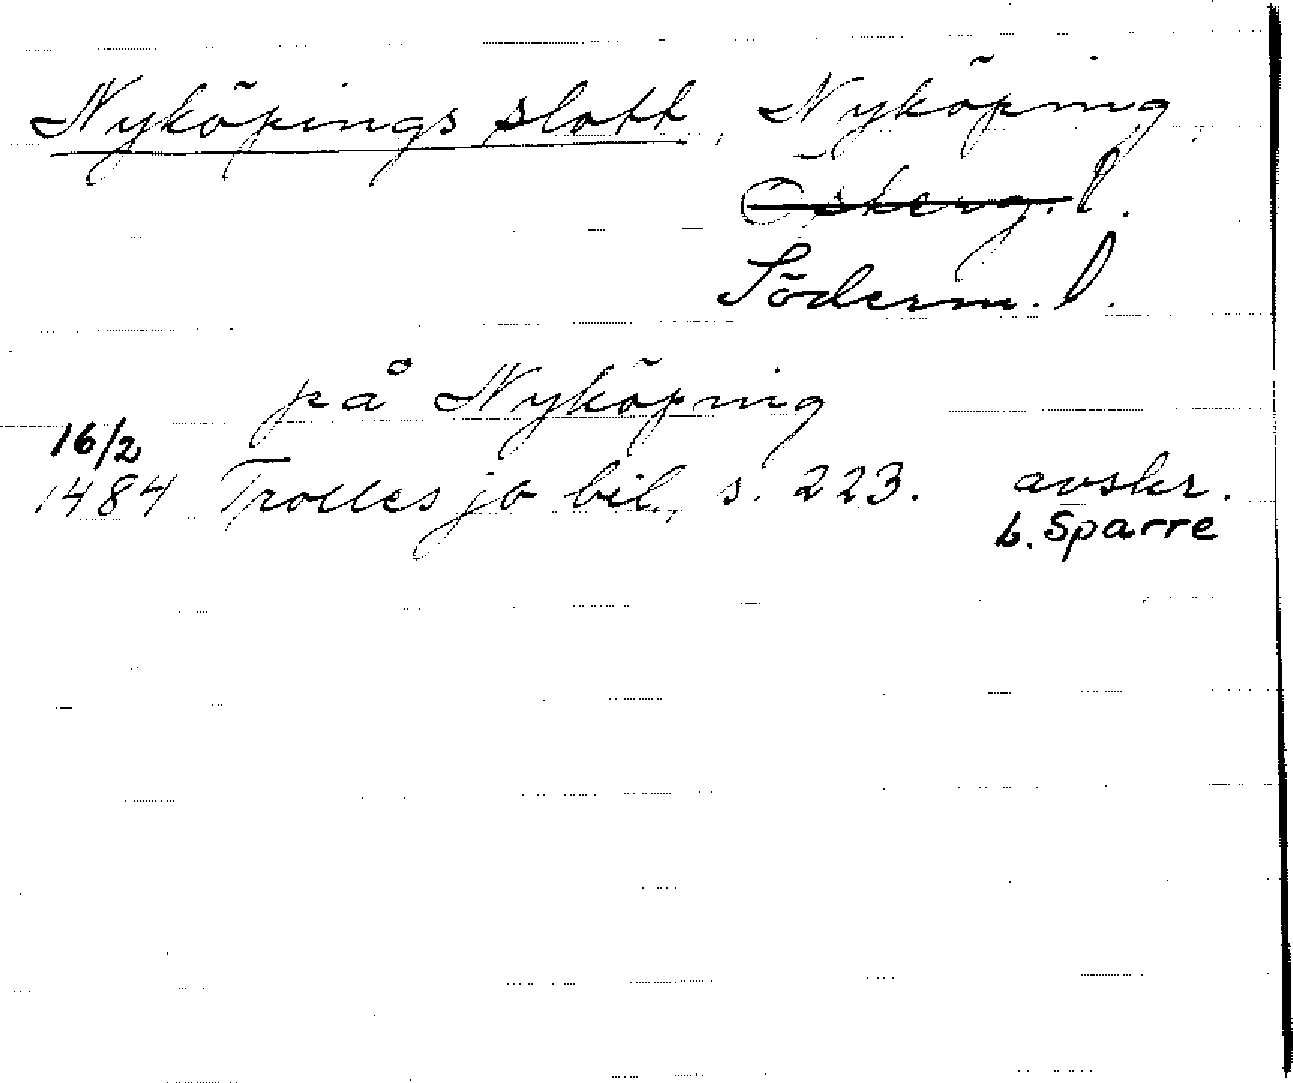 Nyköpings slott, Nyköping,
Österg. l.
Söderm. l.
på Nyköping
16/2
1484 Trolles jb bil., s. 223. avskr.
b. Sparre